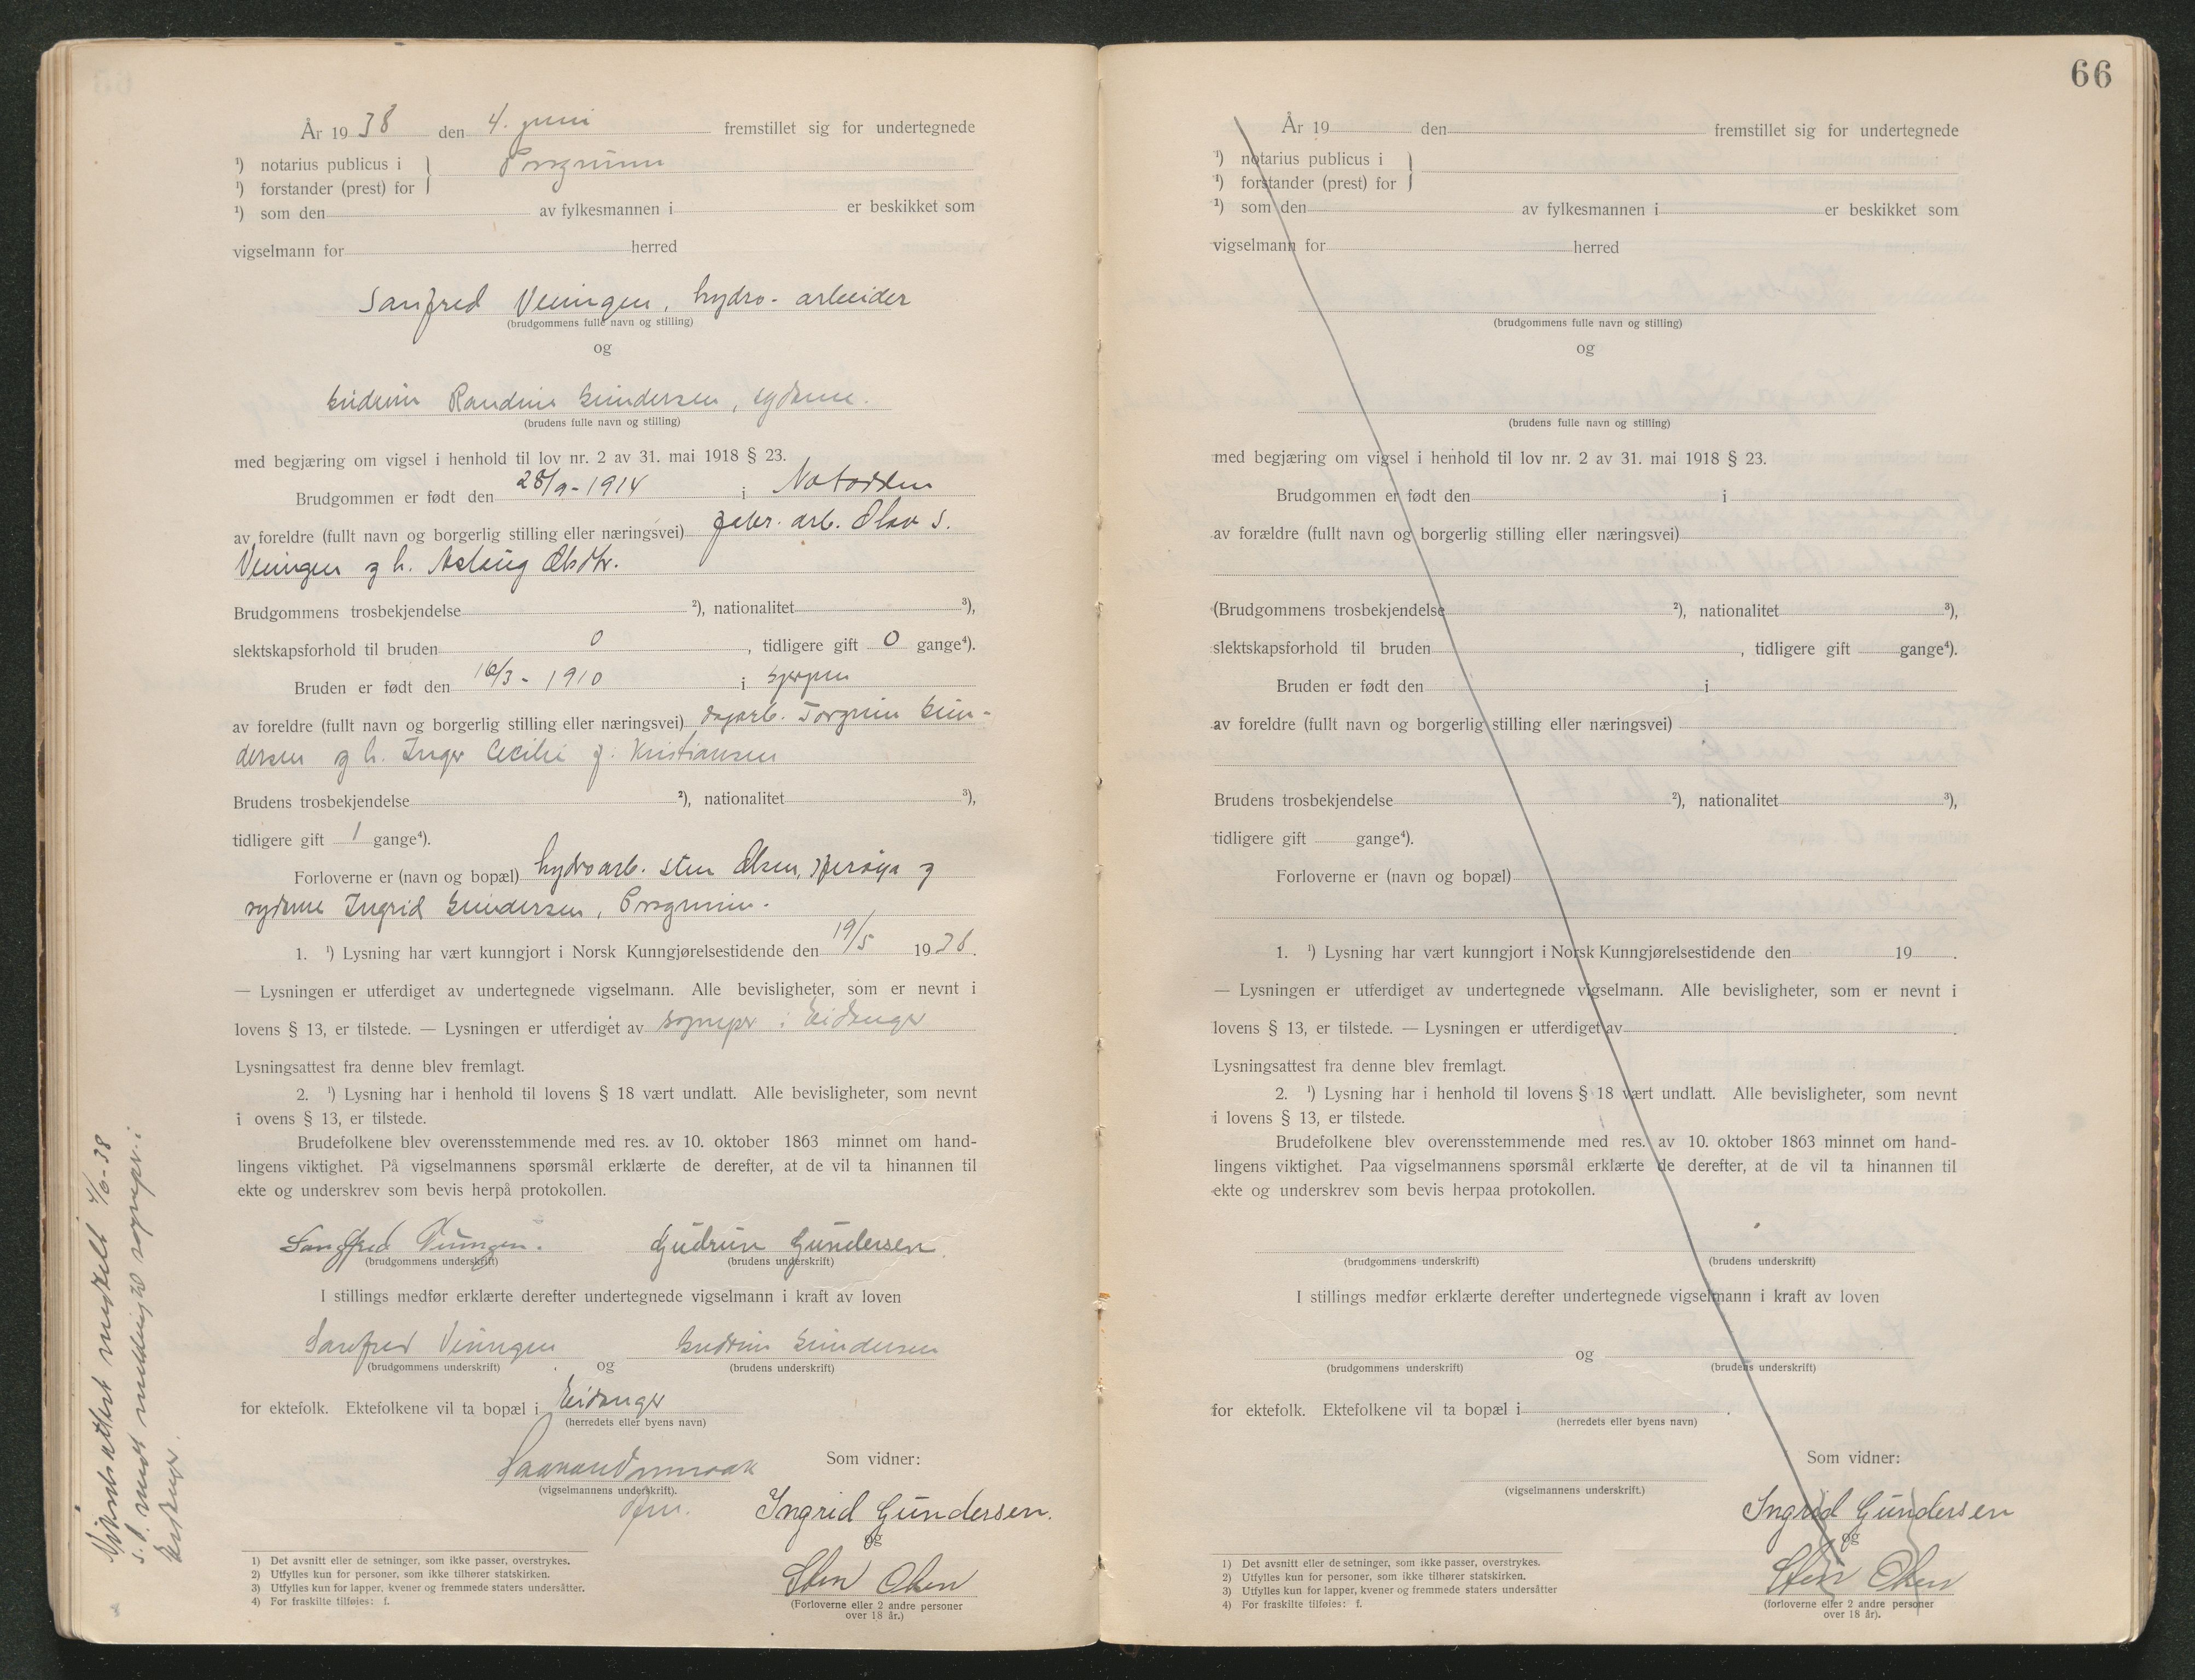 År 1938 den 4. juni fremstillet sig for undertegnede
¹) notarius publicus i } Porsgrunn
¹) forstander (prest) for
¹) som den av fylkesmannen i er beskikket som
vigselmann for herred
Sanfred Veungen, hydro-arbeider
(brudgommens fulle navn og stilling)
og
Gudrun Randine Gundersen, sydame.
(brudens fulle navn og stilling)
med begjæring om vigsel i henhold til lov nr. 2 av 31. mai 1918 § 23.
Brudgommen er født den 28/9-1914 i Notodden
av foreldre (fullt navn og borgerlig stilling eller næringsvei) fabr. arb. Olav S.
Veungen og h. Aslaug Olsdtr.
Brudgommens trosbekjendelse ²), nationalitet ³),
slektskapsforhold til bruden 0, tidligere gift 0 gange⁴).
Bruden er født den 16/3-1910 i Gjerpen
av foreldre (fullt navn og borgerlig stilling eller næringsvei) dagarb. Torgrim Gun-
dersen og h. Inger Cecilie f. Kristiansen
Brudens trosbekjendelse ²), nationalitet ³),
tidligere gift 1 gange⁴).
Forloverne er (navn og bopæl) hydroarb. Sten Olsen, Herøya og
sydame Ingrid Gundersen, Porsgrunn.
1. ¹) Lysning har vært kunngjort i Norsk Kunngjørelsestidende den 19/5 1938.
— Lysningen er utferdiget av undertegnede vigselmann. Alle bevisligheter, som er nevnt i
lovens § 13, er tilstede. — Lysningen er utferdiget av sognepr i Eidanger
Lysningsattest fra denne blev fremlagt.
2. ¹) Lysning har i henhold til lovens § 18 vært undlatt. Alle bevisligheter, som nevnt
i ovens § 13, er tilstede.
Brudefolkene blev overensstemmende med res. av 10. oktober 1863 minnet om hand-
lingens viktighet. På vigselmannens spørsmål erklærte de derefter, at de vil ta hinannen til
ekte og underskrev som bevis herpå protokollen.
Sangfred Veungen. Gudrun Gundersen.
(brudgommens underskrift) (brudens underskrift)
I stillings medfør erklærte derefter undertegnede vigselmann i kraft av loven
Sanfred Veungen og Gudrun Gundersen
(brudgommens underskrift) (brudens underskrift)
for ektefolk. Ektefolkene vil ta bopæl i Eidanger
(herredets eller byens navn)
Som vidner:
(vigselmannens underskrift).
Ingrid Gundersen.
og
Sten Olsen
(Forloverne eller 2 andre personer
over 18 år.)
1) Det avsnitt eller de setninger, som ikke passer, overstrykes.
2) Utfylles kun for personer, som ikke tilhører statskirken.
3) Utfylles kun for lapper, kvener og fremmede staters undersåtter.
4) For fraskilte tilføies: f.
Vigselsattest utstedt 4/6-38
s. d. sendt melding til sognepr. i
Eidanger.
66
År 19 den fremstillet sig for undertegnede
¹) notarius publicus i }
¹) forstander (prest) for
¹) som den av fylkesmannen i er beskikket som
vigselmann for herred
(brudgommens fulle navn og stilling)
og
(brudens fulle navn og stilling)
med begjæring om vigsel i henhold til lov nr. 2 av 31. mai 1918 § 23.
Brudgommen er født den i
av forældre (fullt navn og borgerlig stilling eller næringsvei)
(Brudgommens trosbekjendelse ²), nationalitet ³),
slektskapsforhold til bruden , tidligere gift gange⁴).
Bruden er født den i
av foreldre (fullt navn og borgerlig stilling eller næringsvei)
Brudens trosbekjendelse ²), nationalitet ³),
tidligere gift gange⁴).
Forloverne er (navn og bopæl)
1. ¹) Lysning har vært kunngjort i Norsk Kunngjørelsestidende den 19 .
— Lysningen er utferdiget av undertegnede vigselmann. Alle bevisligheter, som er nevnt i
lovens § 13, er tilstede. — Lysningen er utferdiget av .
Lysningsattest fra denne blev fremlagt.
2. ¹) Lysning har i henhold til lovens § 18 vært undlatt. Alle bevisligheter, som nevnt
i lovens § 13, er tilstede.
Brudefolkene blev overensstemmende med res. av 10. oktober 1863 minnet om hand-
lingens viktighet. Paa vigselmannens spørsmål erklærte de derefter, at de vil ta hinannen til
ekte og underskrev som bevis herpaa protokollen.
(brudgommens underskrift) (brudens underskrift)
I stillings medfør erklærte derefter undertegnede vigselmann i kraft av loven
og
(brudgommens underskrift) (brudens underskrift)
for ektefolk. Ektefolkene vil ta bopæl i .
(herredets eller byens navn)
Som vidner:
(vigselmannens underskrift.)
Ingrid Gundersen
og
Sten Olsen
(forloverne eller 2 andre personer
over 18 år).
1) Det avsnitt eller de setninger, som ikke passer, overstrykes.
2) Utfylles kun for personer, som ikke tilhører statskirken.
3) Utfylles kun for lapper, kvener og fremmede staters undersåtter
4) For fraskilte tilføies: f.